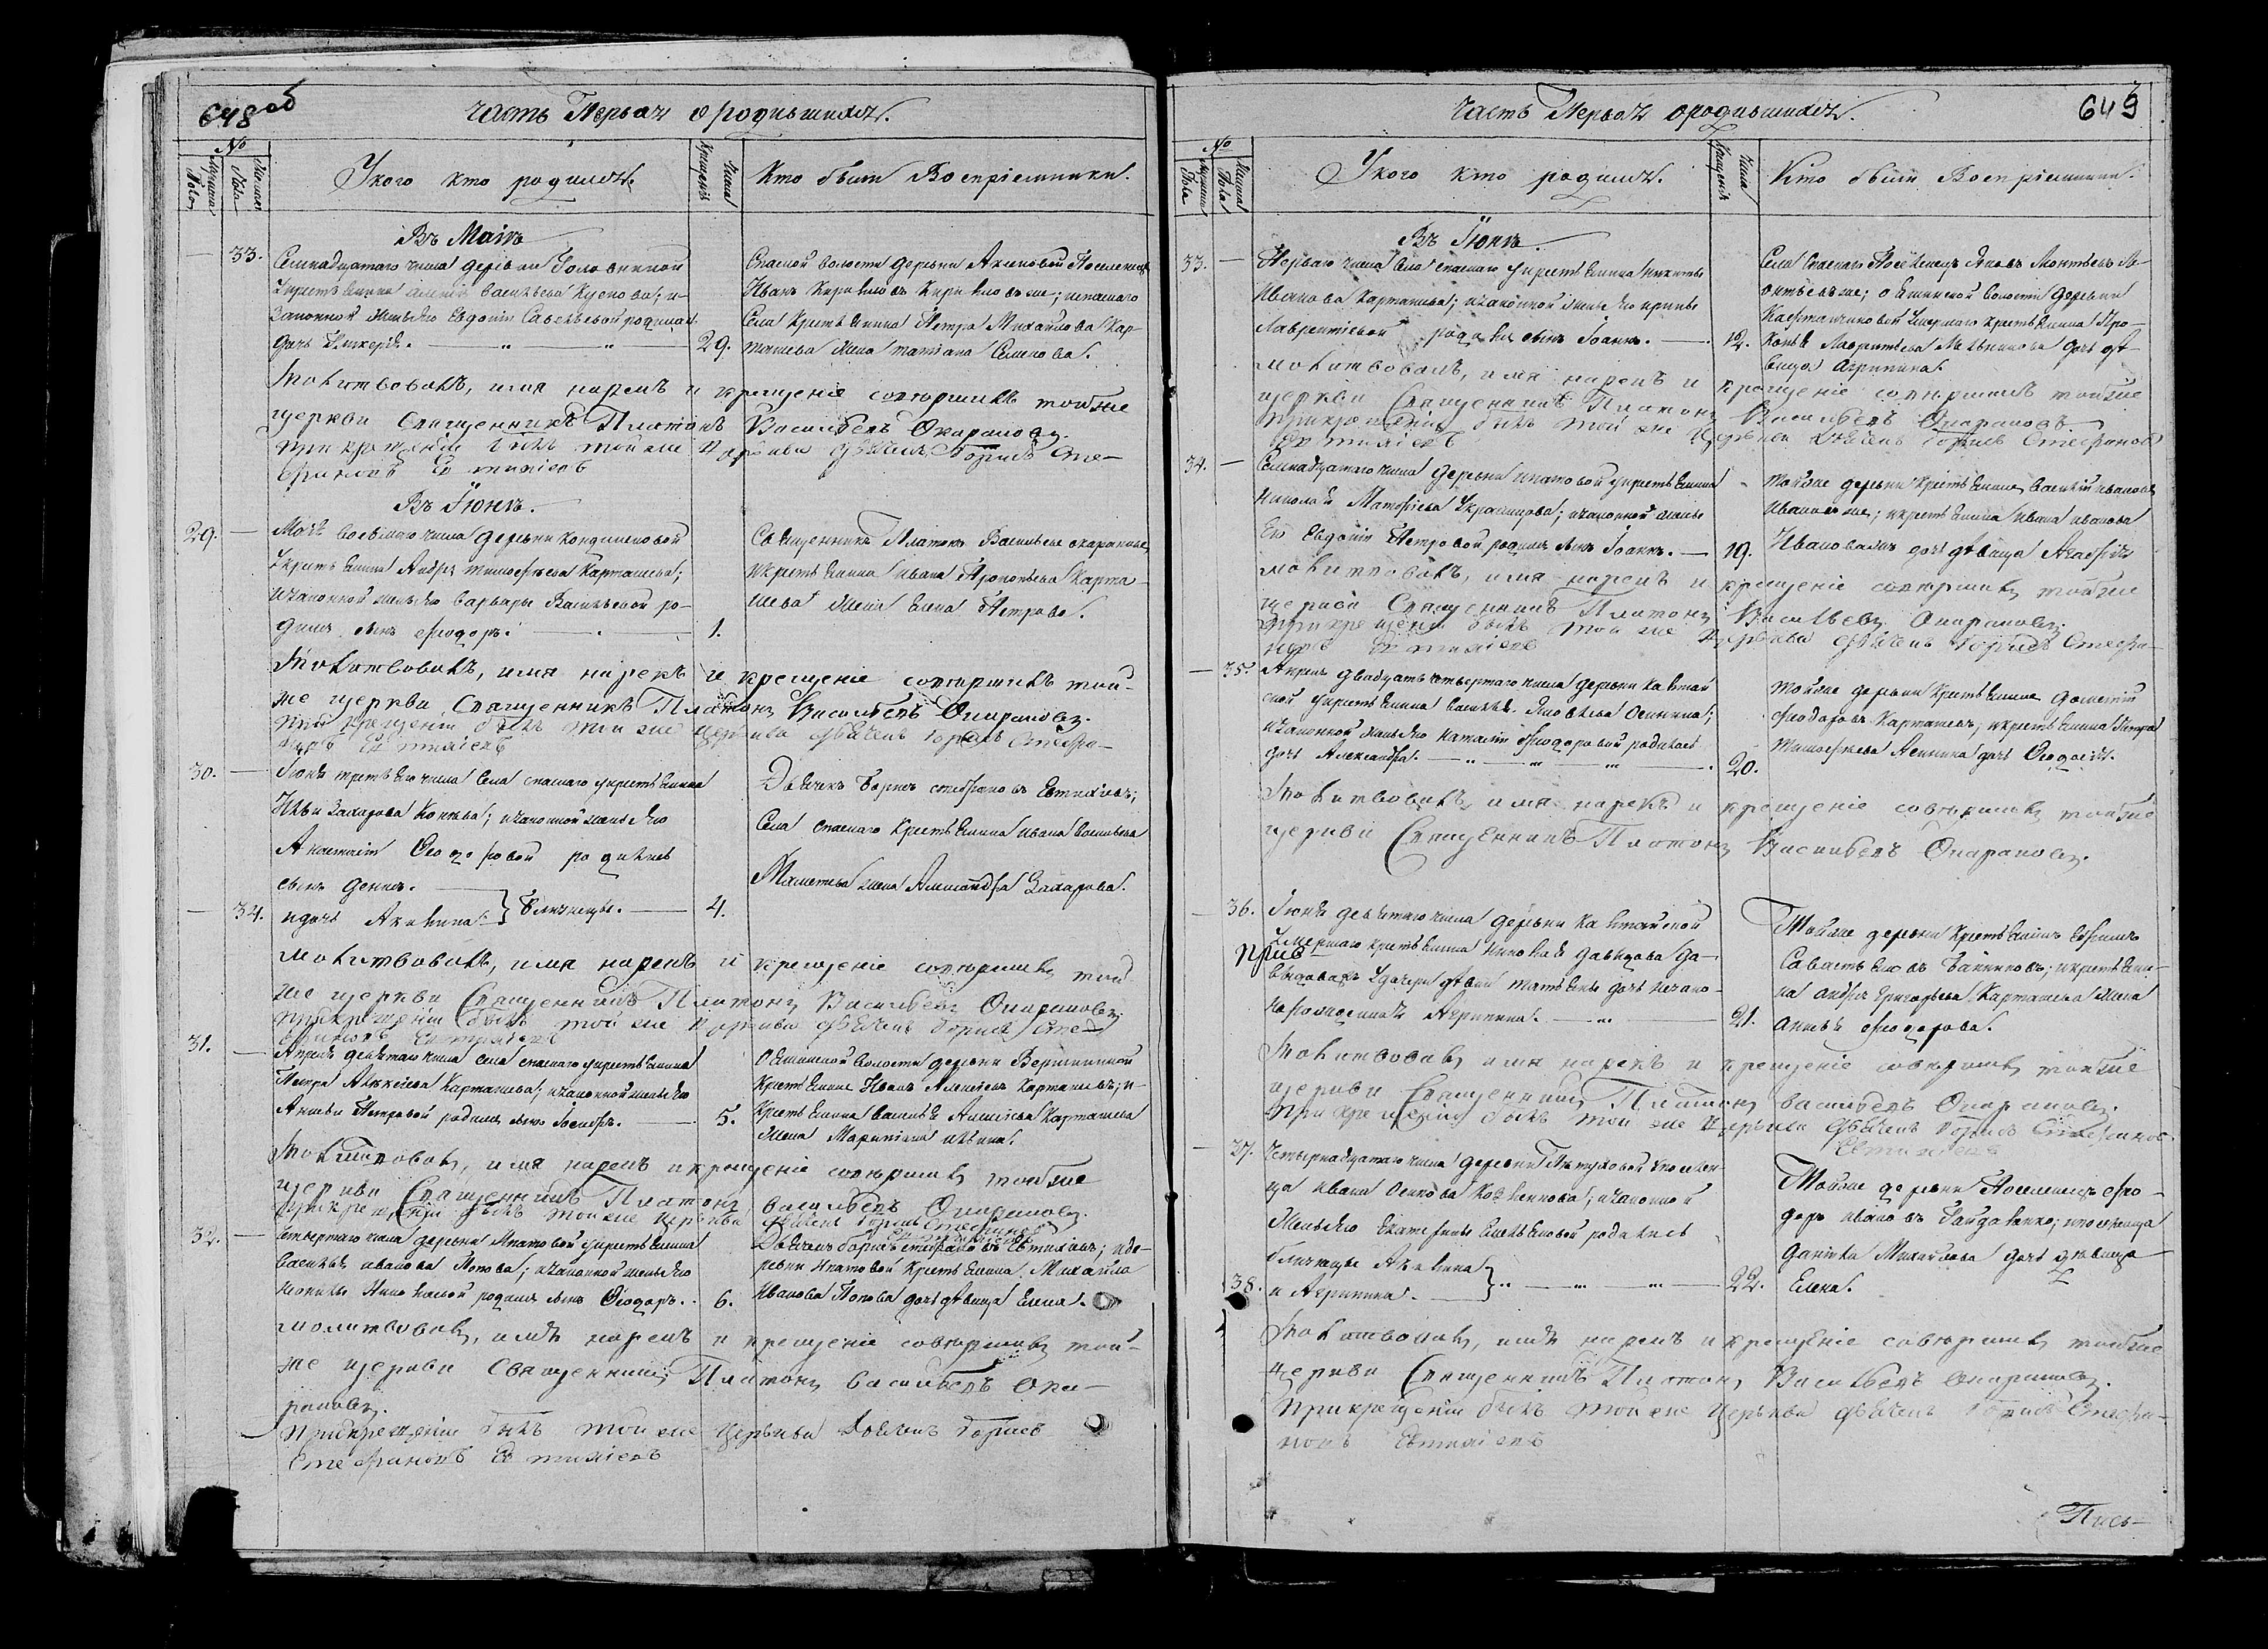 648 об
Часть Первая о родившихся.
№
Мужеска Пола
Женска Пола
У кого кто родился.
Числа Крещенія
Кто были Воспріемники.
Въ Маіѣ
33.
Семнадцатаго числа деревни Головниной
у крестьянина Василья и
законной жены его Евдокіи Савельевой родилась
дочь Гликерія.
29.
Спаской волости деревни Поселенецъ
Иванъ Кириловъ Кириловъ же; и спаскаго
Села Крестьянина Петра Михайлова Кар-
ташева жена татіана Семенова.
Молитвовалъ, имя нарекъ и крещеніе совершилъ тойже
церкви Священникъ Платонъ Васильевъ Опарановъ.
При крещеніи былъ той же Церкви Дьячекъ Борисъ Сте-
фановъ Евтихіевъ
Въ Іюнѣ.
29.
Маія восьмаго числа деревни
у крестьянина Андрея тимофеева Карташева;
и законной жены его Варвары Васильевой ро-
дился сынъ Ѳеодоръ.
1.
Священникъ Платонъ Васильевъ
и крестьянина Ивана Прокопьева Карта-
шева жена Елена Петрова.
Молитвовалъ, имя нарекъ и крещеніе совершилъ той-
же церкви Священникъ Платонъ Васильевъ Опарановъ.
При крещеніи былъ той же Церкви Дьячекъ Борисъ Стефа-
новъ Евтихіевъ
30.
Іюня третьяго числа Села спаскаго у крестьянина
Ильи Захарова и законной жены его
Анастасіи Ѳеодоровой родились
сынъ Денисъ.
34.
и дочь Акилина } близнецы.
4.
Дьячекъ Борисъ стефановъ Евтихіевъ;
Села спаскаго Крестьянина Ивана Васильева
жена Александра Захарова.
Молитвовалъ, имя нарекъ и крещеніе совершилъ той-
же церкви Священникъ Платонъ Васильевъ Опарановъ.
При крещеніи былъ той же Церкви Дьячекъ Борисъ Сте-
фановъ Евтихіевъ
31.
Апреля девятаго числа села спаскаго у крестьянина
Петра Алексѣева Карташева; и законной жены его
Петровой родился сынъ Іосифъ.
5.
волости деревни Вершининой
Крестьянинъ Иванъ Алексѣевъ Карташевъ; и
Крестьянина Василья Алексѣева Карташева
жена Ильина.
Молитвовалъ, имя нарекъ и крещеніе совершилъ тойже
церкви Священникъ Платонъ Васильевъ Опарановъ.
При крещеніи былъ той же Церкви Дьячекъ Борисъ Стефановъ
Евтихіевъ
32.
Четвертаго числа деревни Ипатовой у крестьянина
Василья Иванова Попова; и законной жены его
Николаевой родился сынъ Ѳеодоръ.
6.
Дьячекъ Борисъ стефановъ Евтихіевъ; и де-
ревни Ипатовой Крестьянина Михаила
Иванова Попова дочь дѣвица Елена.
Молитвовалъ, имя нарекъ и крещеніе совершилъ той-
же церкви Священникъ Платонъ Васильевъ Опа-
рановъ.
При крещеніи былъ той же Церкви Дьячекъ Борисъ
Стефановъ Евтихіевъ
649
Часть Первая о родившихся.
№
Мужеска Пола
Женска Пола
У кого кто родился.
Числа Крещенія
Кто были Воспріемники.
Въ Іюнѣ.
33.
Перваго числа Села спаскаго у крестьянина Никиты
Иванова Карташева; и законной жены его
Лаврентіевой родился сынъ Іоаннъ.
12.
Села Спаскаго Поселенецъ Яковъ Леонтьевъ Ле-
онтьевъ же; волости деревни
умершаго крестьянина Про-
копья Лаврентьева Мельникова дочь дѣ-
вица Агрипина.
Молитвовалъ, имя нарекъ и крещеніе совершилъ тойже
церкви Священникъ Платонъ Васильевъ Опарановъ.
При крещеніи былъ той же Церкви Дьячекъ Борисъ Стефановъ
Евтихіевъ
34.
Семнадцатаго числа деревни ипатовой у крестьянина
Николая Матфіева и законной жены
его Евдокіи Петровой родился сынъ Іоаннъ.
19.
тойже деревни Крестьянинъ Василій Ивановъ
Ивановъ же; и крестьянина Ивана Иванова
Иванова же дочь дѣвица Агафія
Молитвовалъ, имя нарекъ и крещеніе совершилъ тойже
церкви Священникъ Платонъ Васильевъ Опарановъ.
При крещеніи былъ той же Церкви Дьячекъ Борисъ Стефа-
новъ Евтихіевъ
35.
Апреля двадцать четвертаго числа деревни Калтай-
ской у крестьянина Василья Яковлева
и законной жены его Наталіи Ѳеодоровой родилась
дочь Александра.
20.
тойже деревни Крестьянинъ Дометій
Ѳеодоровъ Карташевъ; и крестьянина Петра
Тимофеева дочь Ѳеодосія.
Молитвовалъ, имя нарекъ и крещеніе совершилъ тойже
церкви Священникъ Платонъ Васильевъ Опарановъ.
36.
Іюня девятаго числа деревни Калтайской
умершаго крестьянина Николая Давыдова Да-
выдова же у дочери дѣвки Татьяны дочь незако-
норожденная Агрипина.
21.
Тойже деревни Крестьянинъ
Савастьяновъ и крестьяни-
на Андрея Григорьева Карташева жена
Анна Ѳеодорова.
Молитвовалъ, имя нарекъ и крещеніе совершилъ тойже
церкви Священникъ Платонъ Васильевъ Опарановъ.
При крещеніи былъ той же Церкви Дьячекъ Борисъ Стефановъ
Евтихіевъ
37.
Четырнадцатаго числа деревни Петуховой у поселен-
ца Ивана Осипова и законной
жены его Екатерины родились
близнецы Акилина
38.
и Агрипина. }
22.
Тойже деревни Поселенецъ Ѳео-
доръ Ивановъ Гайдаенко; и поселенца
Данила Михайлова дочь дѣвица
Елена.
Молитвовалъ, имя нарекъ и крещеніе совершилъ тойже
Церкви Священникъ Платонъ Васильевъ Опарановъ.
При крещеніи былъ той же Церкви Дьячекъ Борисъ Стефа-
новъ Евтихіевъ